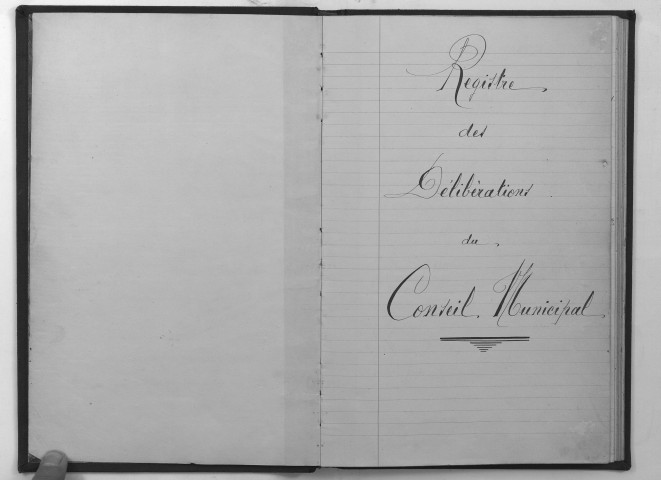 Registre
des
Délibérations
du
Conseil Municipal